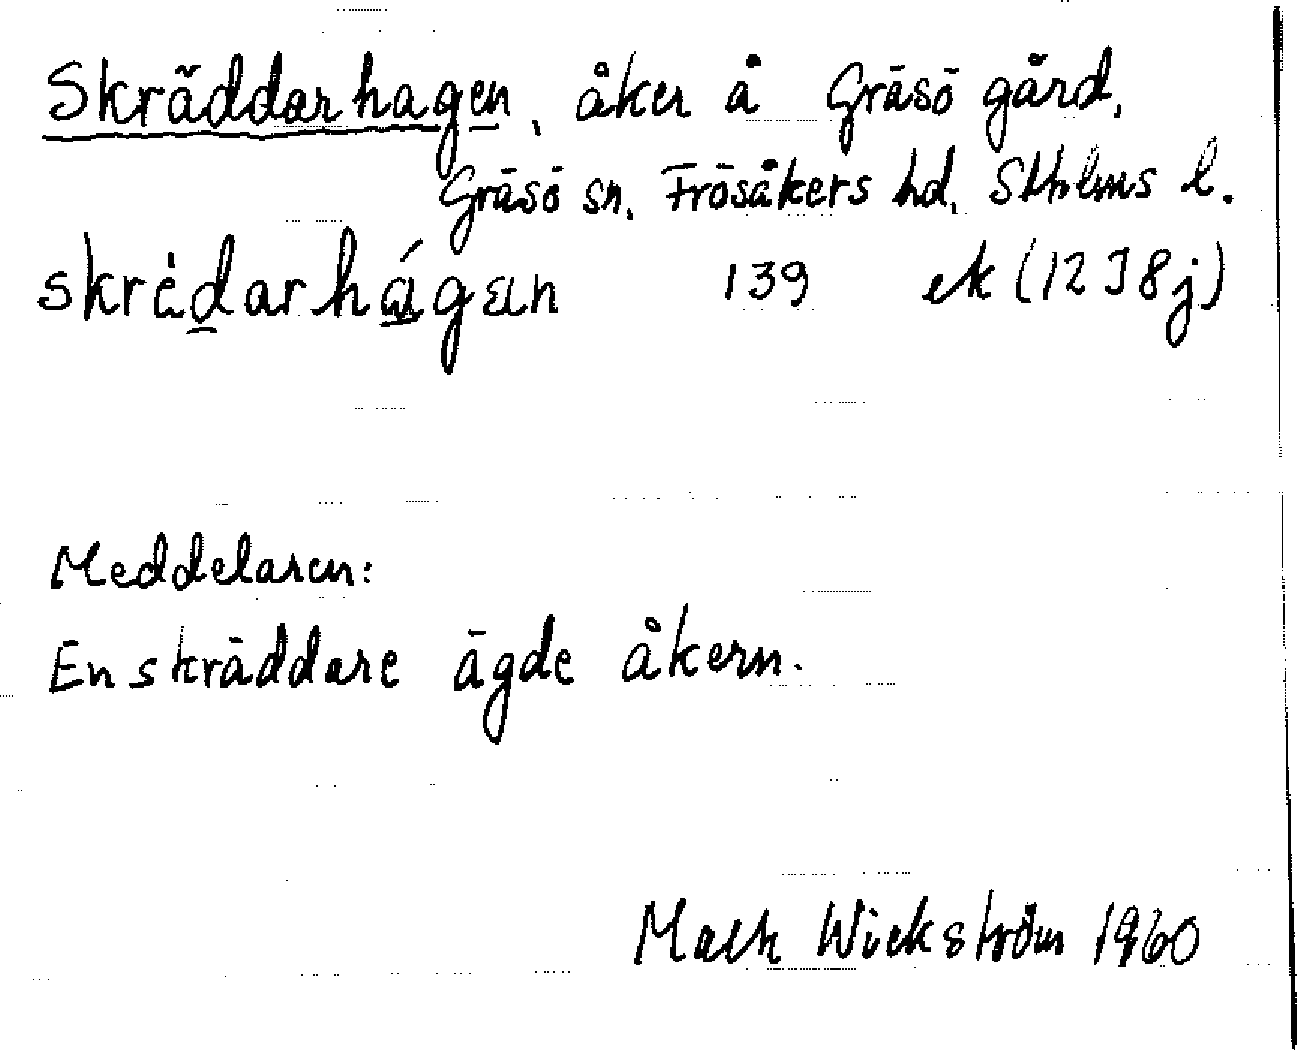 Skräddarhagen, åker å Gräsö gård,
Gräsö sn, Frösåkers hd, Sthlms l.
skrèdarhágɛn 139 ek (12 I 8 j)
Meddelaren:
En skräddare ägde åkern.
Wickström 1960